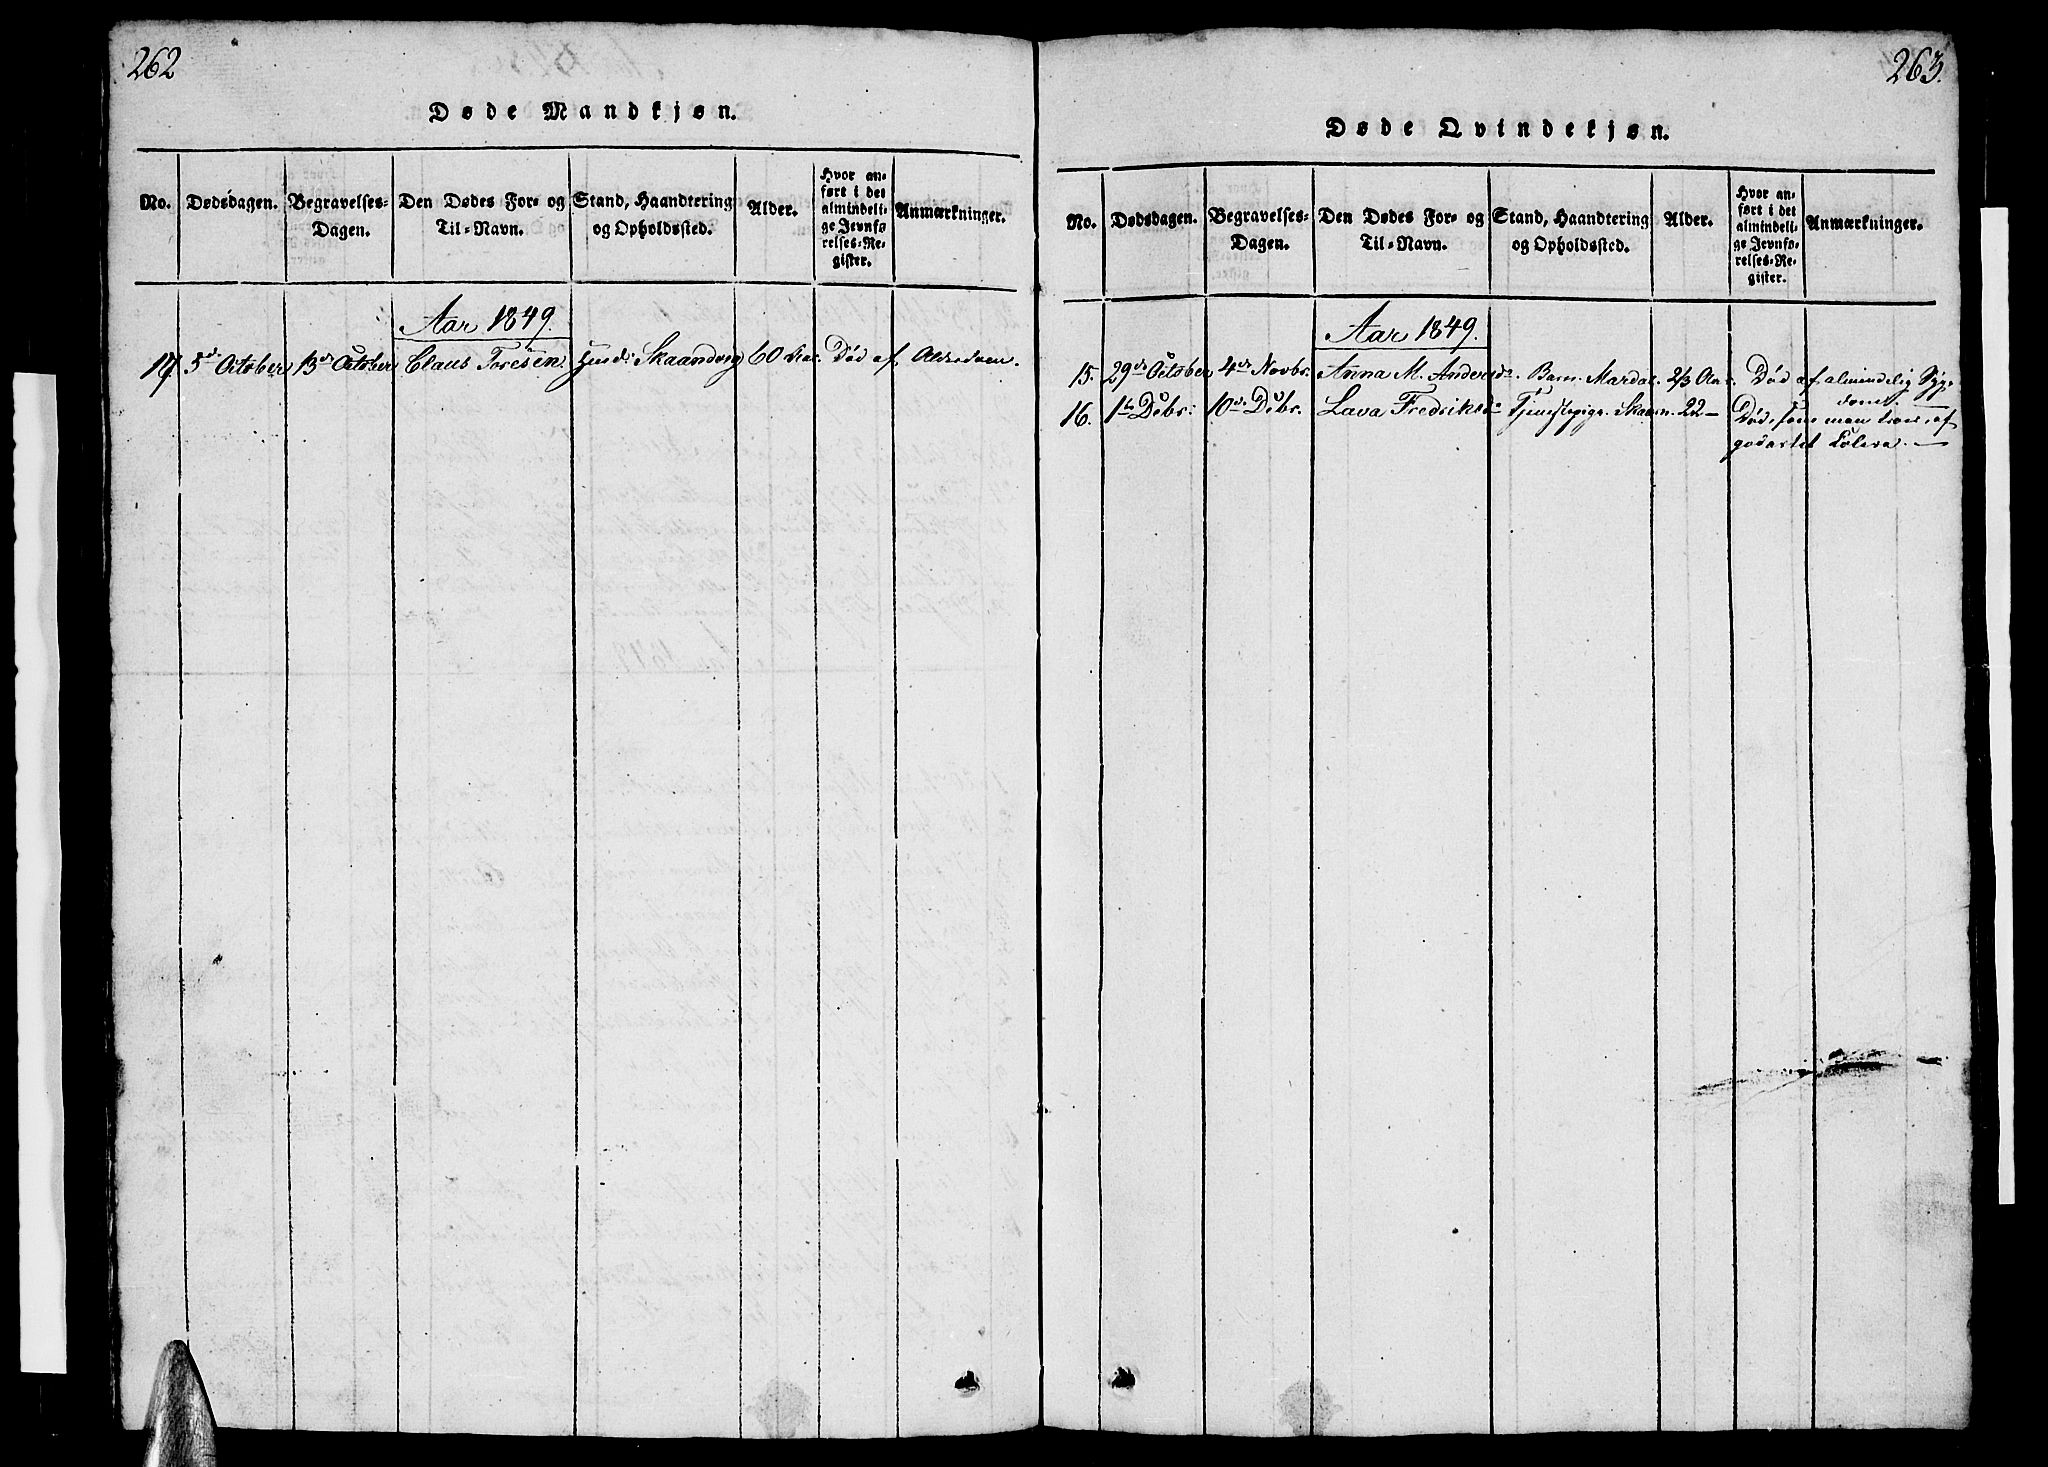 262
Døde Mandkjøn.
No. Dødsdagen. Begravelses-Dagen. Den Dødes For- og Til-Navn. Stand, Haandtering og Opholdssted. Alder. Hvor anført i det almindelige Jevnførelses-Register. Anmærkninger.
Aar 1849.
17. 5d October 13de October Claus Toresen. Huusd: Skaandvig 60 Aar. Død af Alderdom.
263.
Døde Qvindekjøn.
No. Dødsdagen. Begravelses-Dagen. Den Dødes For- og Til-Navn. Stand, Haandtering og Opholdssted. Alder. Hvor anført i det almindelige Jevnførelses-Register. Anmærkninger.
Aar 1849.
15. 29de October 4de Novbr. Anna M. Andersd. Barn. 2/3 Aar. Død af almindelig Syge-
dom.
16. 1te Debr: 10de Debr. Lava Fredriksd. Tjenestepige. 22 — Død, som man troer, af
godartet Colera. —